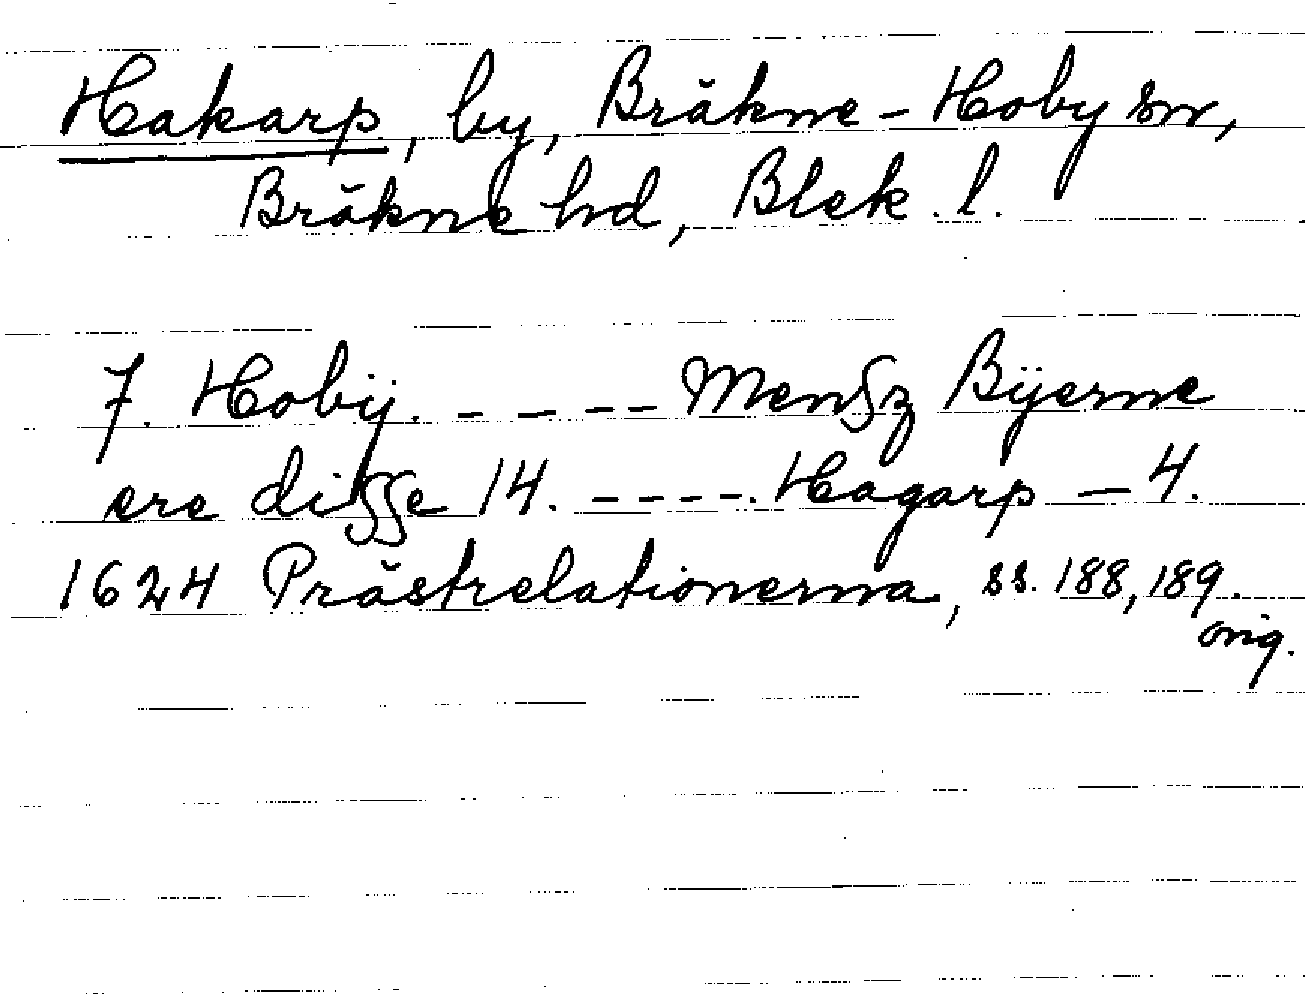 Hakarp, by, Bräkne-Hoby sn,
Bräkne hd, Blek. l.
7. Hobÿ. - - - - Mensz Bÿerne
ere disse 14. - - - -. Hagarp - 4.
1624 Prästrelationerna, ss. 188, 189.
orig.